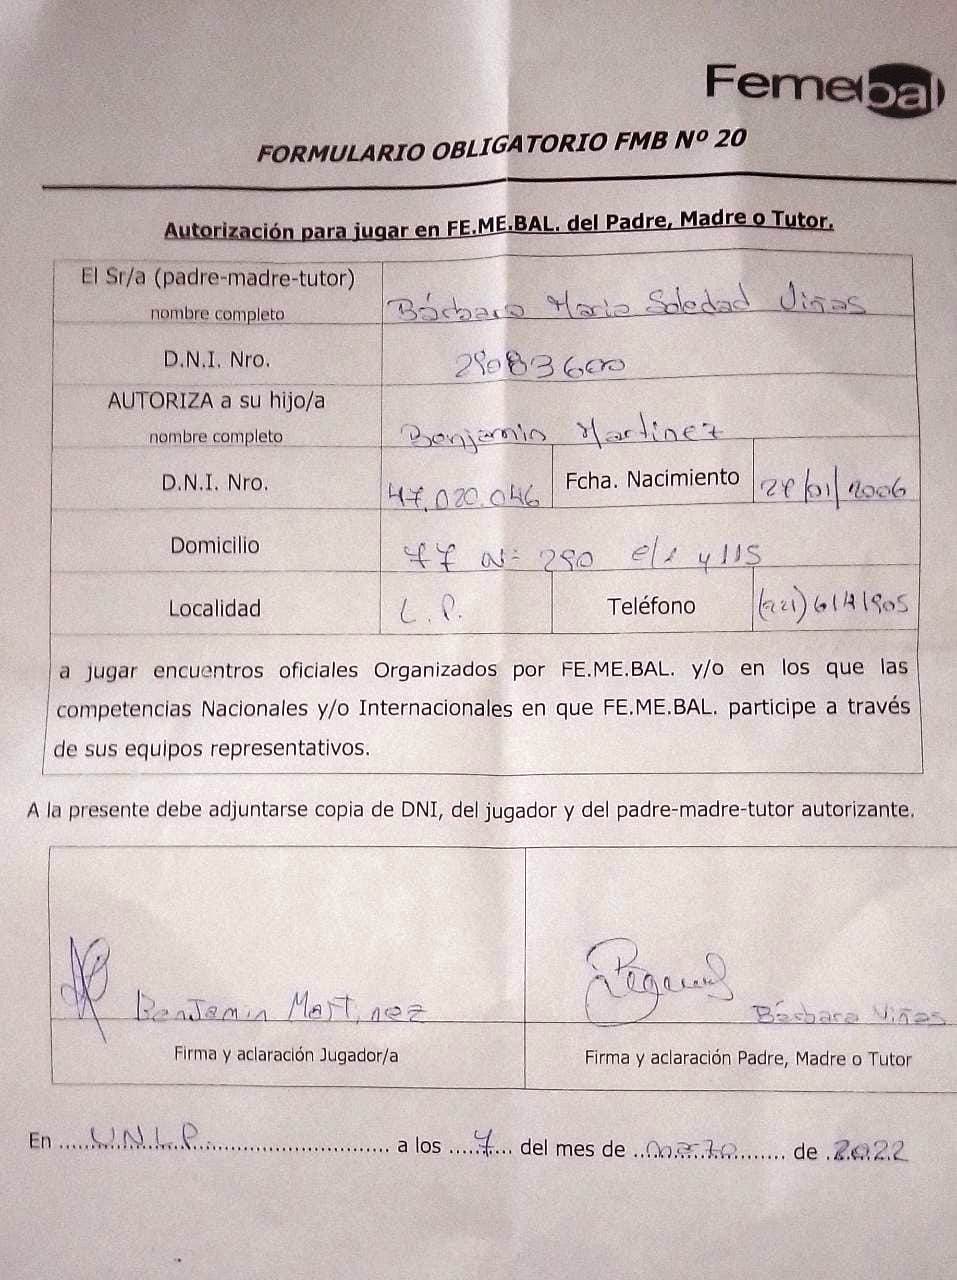 Femebal
FORMULARIO OBLIGATORIO FMB Nº 20
Autorización para jugar en FE.ME.BAL. del Padre, Madre o Tutor.
El Sr/a (padre-madre-tutor)
nombre completo
Bárbara María Soledad Viñas
D.N.I. Nro.
29083600
AUTORIZA a su hijo/a
nombre completo
Benjamin Martinez
D.N.I. Nro.
47.020.046
Fcha. Nacimiento
/01/2006
Domicilio
77 Nº 290 e/1 y 115
Localidad
L.P.
Teléfono
(221) 6141905
a jugar encuentros oficiales Organizados por FE.ME.BAL. y/o en los que las
competencias Nacionales y/o Internacionales en que FE.ME.BAL. participe a través
de sus equipos representativos.
A la presente debe adjuntarse copia de DNI, del jugador y del padre-madre-tutor autorizante.
Benjamin Martinez
Bárbara Viñas
Firma y aclaración Jugador/a
Firma y aclaración Padre, Madre o Tutor
En U.N.L.P. a los 7 del mes de marzo de 2022